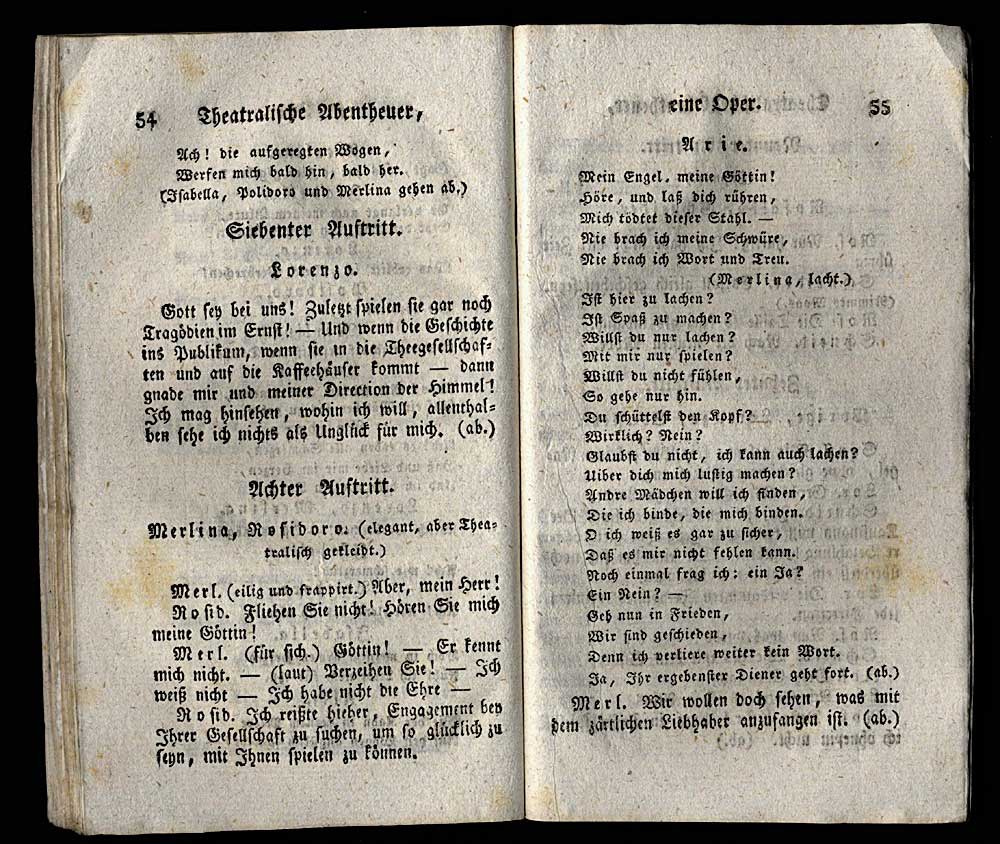 54 Theatralische Abentheuer,
Ach! die aufgeregten Wogen,
Werfen mich bald hin, bald her.
(Isabella, Polidoro und Merlina gehen ab.)
Siebenter Auftritt.
Lorenzo.
Gott sey bei uns! Zuletzt spielen sie gar noch
Tragödien im Ernst! — Und wenn die Geschichte
ins Publikum, wenn sie in die Theegesellschaf-
ten und auf die Kaffeehäuser kommt — dann
gnade mir und meiner Direction der Himmel!
Ich mag hinsehen, wohin ich will, allenthal-
ben sehe ich nichts als Unglück für mich. (ab.)
Achter Auftritt.
Merlina, Rosidoro. (elegant, aber Thea-
tralisch gekleidt.)
Merl. (eilig und frappirt.) Aber, mein Herr!
Rosid. Fliehen Sie nicht! Hören Sie mich
meine Göttin!
Merl. (für sich.) Göttin! — Er kennt
mich nicht. — (laut) Verzeihen Sie! — Ich
weiß nicht — Ich habe nicht die Ehre —
Rosid. Ich reißte hieher, Engagement bey
Ihrer Gesellschaft zu suchen, um so glücklich zu
seyn, mit Ihnen spielen zu können.
eine Oper. 55
Arie.
Mein Engel, meine Göttin!
Höre, und laß dich rühren,
Mich tödtet dieser Stahl. —
Nie brach ich meine Schwüre,
Nie brach ich Wort und Treu.
(Merlina, lacht.)
Ist hier zu lachen?
Ist Spaß zu machen?
Willst du nur lachen?
Mit mir nur spielen?
Willst du nicht fühlen,
So gehe nur hin.
Du schüttelst den Kopf? —
Wirklich? Nein?
Glaubst du nicht, ich kann auch lachen?
Uiber dich mich lustig machen?
Andre Mädchen will ich finden,
Die ich binde, die mich binden.
O ich weiß es gar zu sicher,
Daß es mir nicht fehlen kann.
Noch einmal frag ich: ein Ja?
Ein Nein? —
Geh nun in Frieden,
Wir sind geschieden,
Denn ich verliere weiter kein Wort.
Ja, Ihr ergebenster Diener geht fort. (ab.)
Merl. Wir wollen doch sehen, was mit
dem zärtlichen Liebhaber anzufangen ist. (ab.)